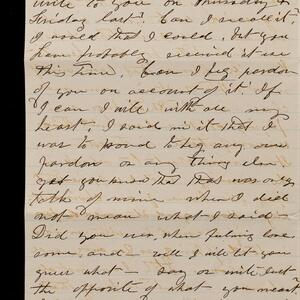 write to you on Thursday &
Friday last? Can I recall it?
I avowed that I could, but you
have probably received it ere
this time. Can I beg pardon
of you on account of it? If
I can I will with all my
heart. I said in it that I
was to proud to beg any one
pardon or any thing else
yet you know that that was only
talk of mine when I did
not mean what I said—
Did you ever, when feeling
some, and — will I let you
guess what — say or write just
the opposite of what you meant